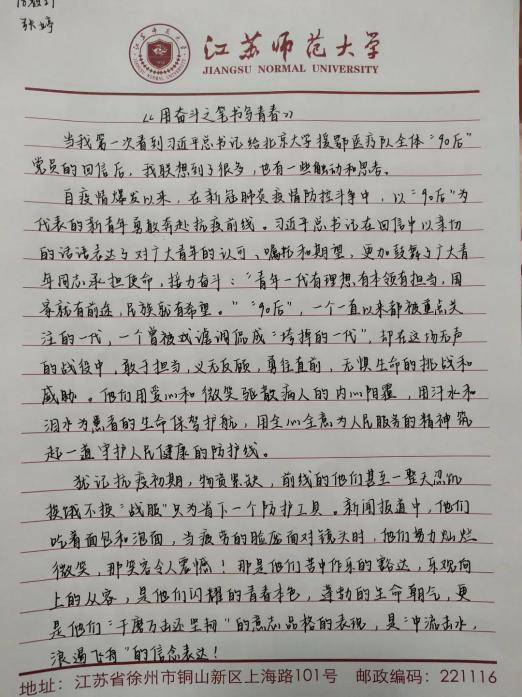 张婷
江苏师范大学
JIANGSU NORMAL UNIVERSITY
《用奋斗之笔书写青春》
当我第一次看到习近平总书记给北京大学援鄂医疗队全体“90后”
党员的回信后，我联想到了很多，也有一些触动和思考。
自疫情爆发以来，在新冠肺炎疫情防控斗争中，以“90后”为
代表的新青年勇敢奔赴抗疫前线。习近平总书记在回信中以亲切
的话语表达了对广大青年的认可、嘱托和期望，更加鼓舞了广大青
年同志承担使命，接力奋斗：“青年一代有理想有本领有担当，国
家就有前途，民族就有希望。”“90后”，一个一直以来都被重点关
注的一代，一个曾被戏谑调侃成“垮掉的一代”，却在这场无声
的战役中，敢于担当，义无反顾，勇往直前，无惧生命的挑战和
威胁。他们用爱心和微笑驱散病人的内心阴霾，用汗水和
泪水为患者的生命保驾护航，用全心全意为人民服务的精神筑
起一道守护人民健康的防护线。
犹记抗疫初期，物资紧缺，前线的他们甚至一整天忍饥
挨饿不换“战服”只为省下一个防护工具。新闻报道中，他们
吃着面包和泡面，当疲劳的脸庞面对镜头时，他们努力灿烂
微笑，那笑容令人震憾！那是他们苦中作乐的豁达，乐观向
上的从容，是他们闪耀的青春本色，蓬勃的生命朝气，更
是他们“千磨万击还坚韧”的意志品格的表现，是“中流击水，
浪遏飞舟”的信念表达！
地址：江苏省徐州市铜山新区上海路101号 邮政编码：221116